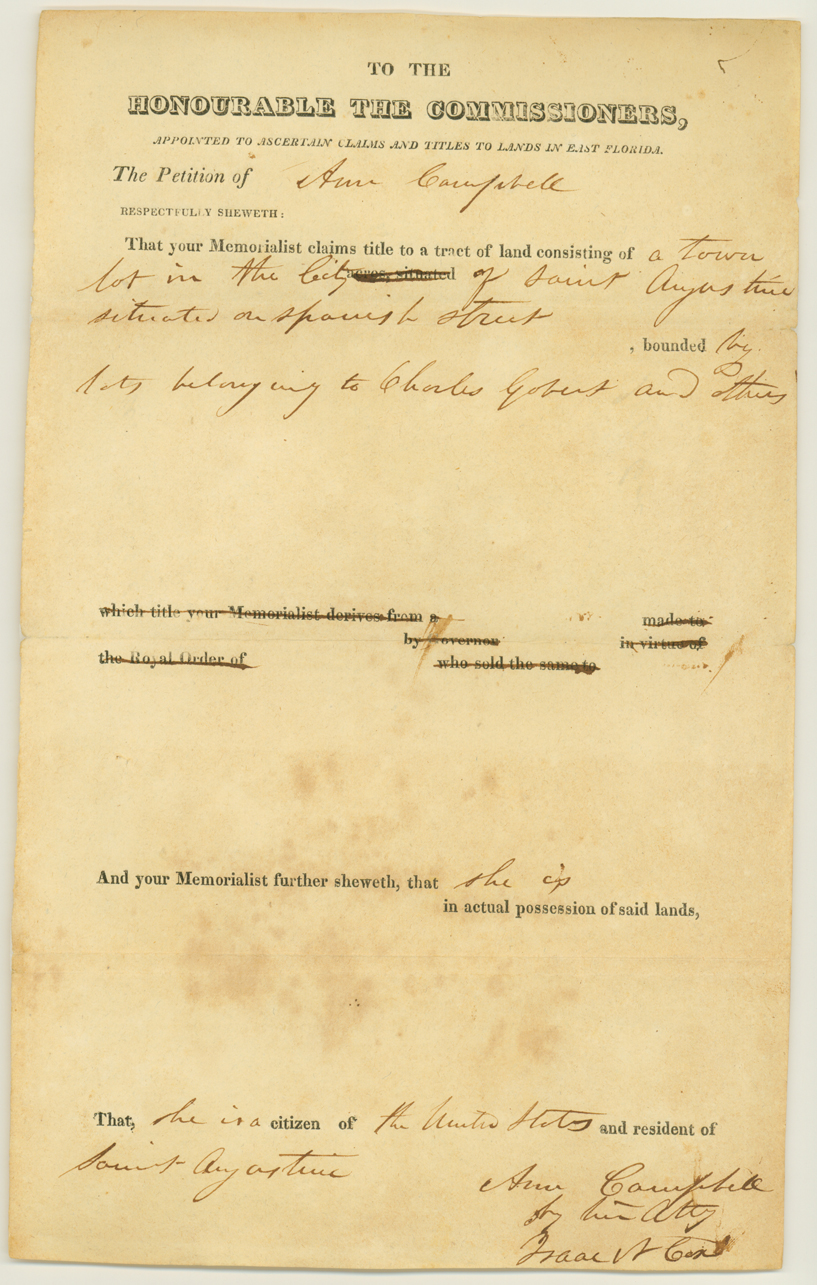 TO THE
HONOURABLE THE COMMISSIONERS,
APPOINTED TO ASCERTAIN CLAIMS AND TITLES TO LANDS IN EAST FLORIDA.
The Petition of Ann Campbell
RESPECTFULLY SHEWETH:
That your Memorialist claims title to a tract of land consisting of a town
lot in the City acres, situated of Saint Augustine
situated on spanish street
, bounded by
lots belonging to Charles Gobert and others
which title your Memorialist derives from a made to
by Governor in virtue of
the Royal Order of who sold the same to
And your Memorialist further sheweth, that she is
in actual possession of said lands,
That, she is a citizen of the United States and resident of
Saint Augustine
Ann Campbell
by her Atty
Isaac N Cox